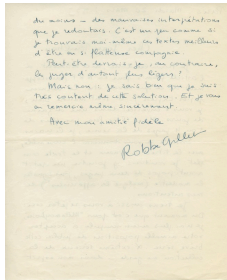 du moins — des mauvaises interprétations
que je redoutais. C'est un peu comme si
je trouvais moi-même ces textes meilleurs
d'être en si flatteuse compagnie.
Peut-être devrais-je, au contraire,
les juger d'autant plus légers !
Mais non : je sais bien que je suis
très content de cette solution. Et je vous
en remercie même, sincèrement.
Avec mon amitié fidèle